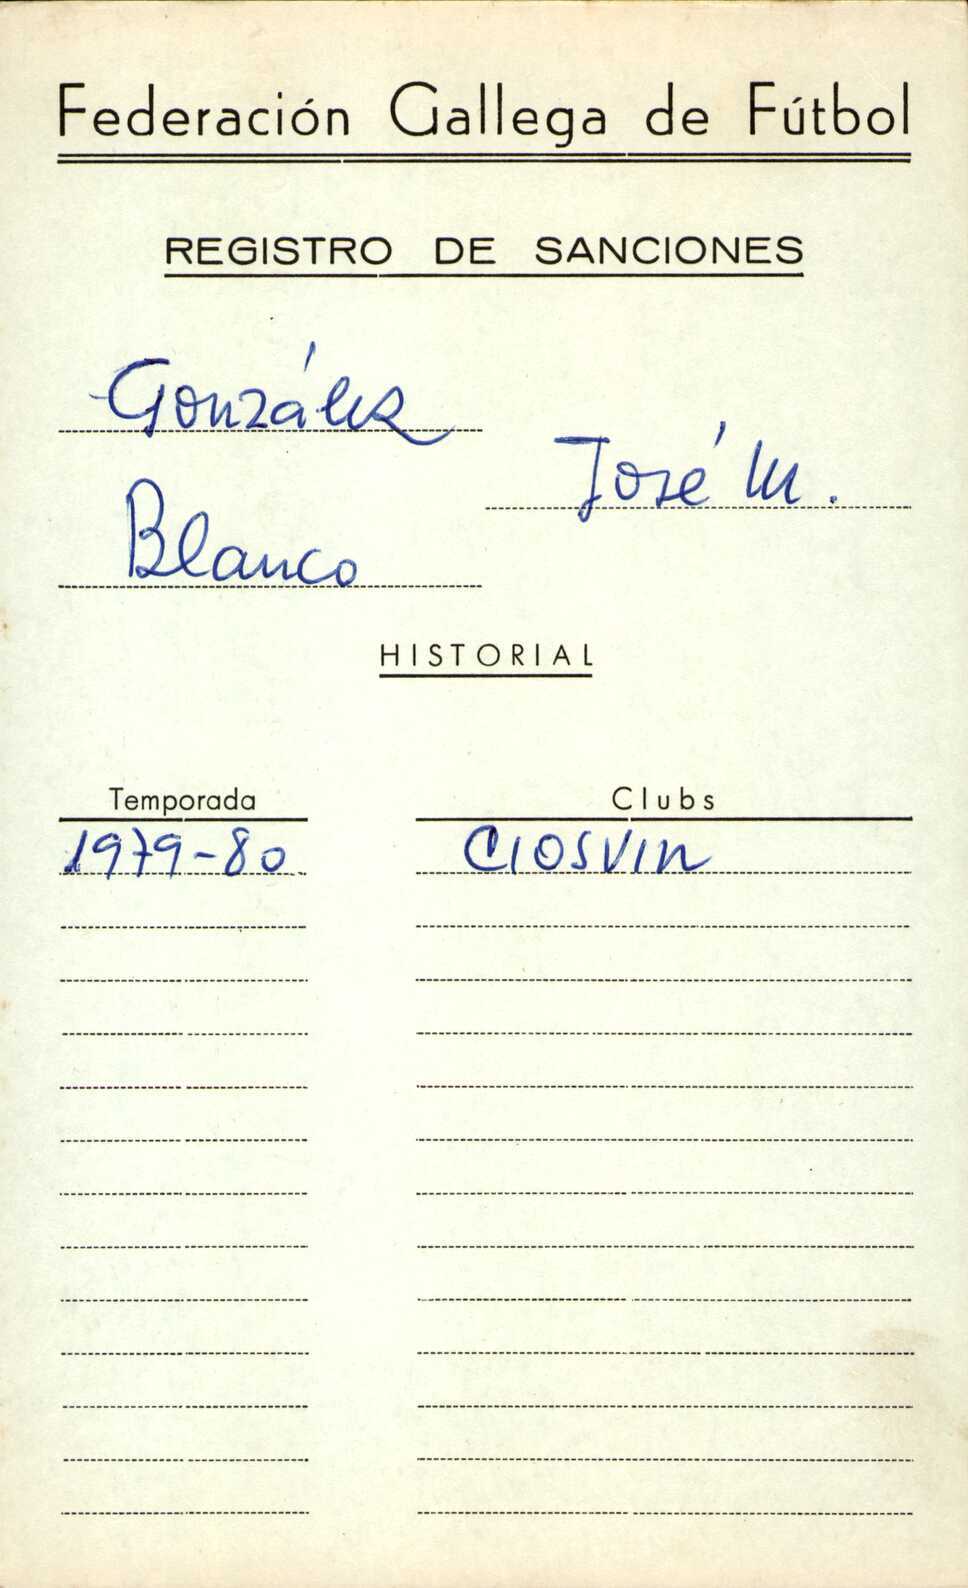 Federación Gallega de Fútbol
REGISTRO DE SANCIONES
González
José M.
Blanco
HISTORIAL
Temporada Clubs
1979-80 CIOSVIN